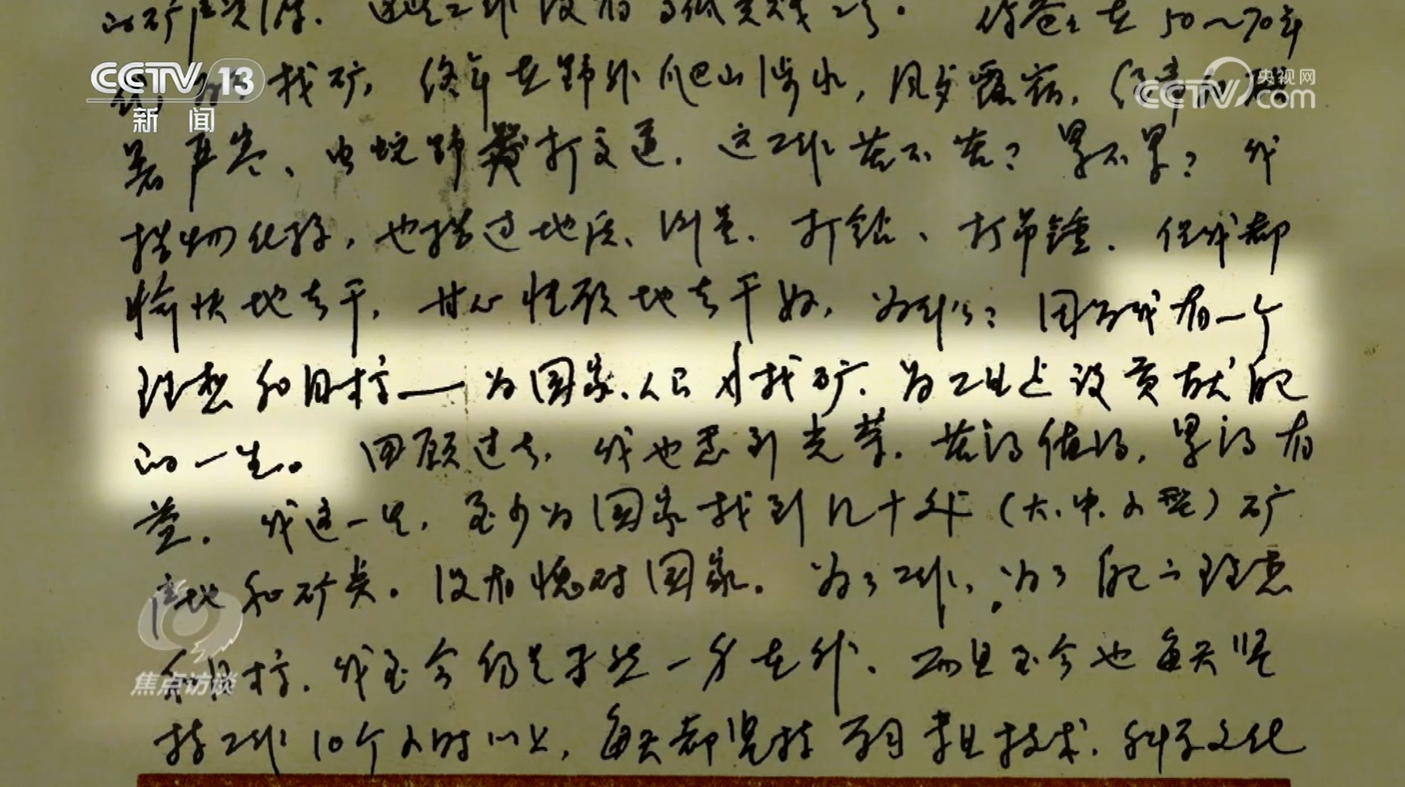 的矿产资源. 这些工作没有 你爸爸在50～70年
CCTV 13
新闻
央视网
CCTV.com
找矿, 终年在野外爬山涉水, 风歺露宿,
暑严寒、虫蛇野兽打交道. 这工作苦不苦? 累不累? 我
搞物化探, 也搞过地质、测量、打钻、打吊锤. 但我都
愉快地去干, 甘心情愿地去干好, 为什么? 因为我有一个
理想和目标——为国家、人民找矿、为工业建设贡献自己
的一生。回顾过去, 我也感到光荣. 苦的值得, 累的有
益. 我这一生, 至少为国家找到几十处(大、中、小型)矿
产地和矿点. 没有愧对国家. 为了工作, 为了自己的理想
和目标, 我至今仍是孑然一身在外、而且至今也每天坚
持工作10个小时以上, 每天都坚持 技术、科学文化
焦点访谈